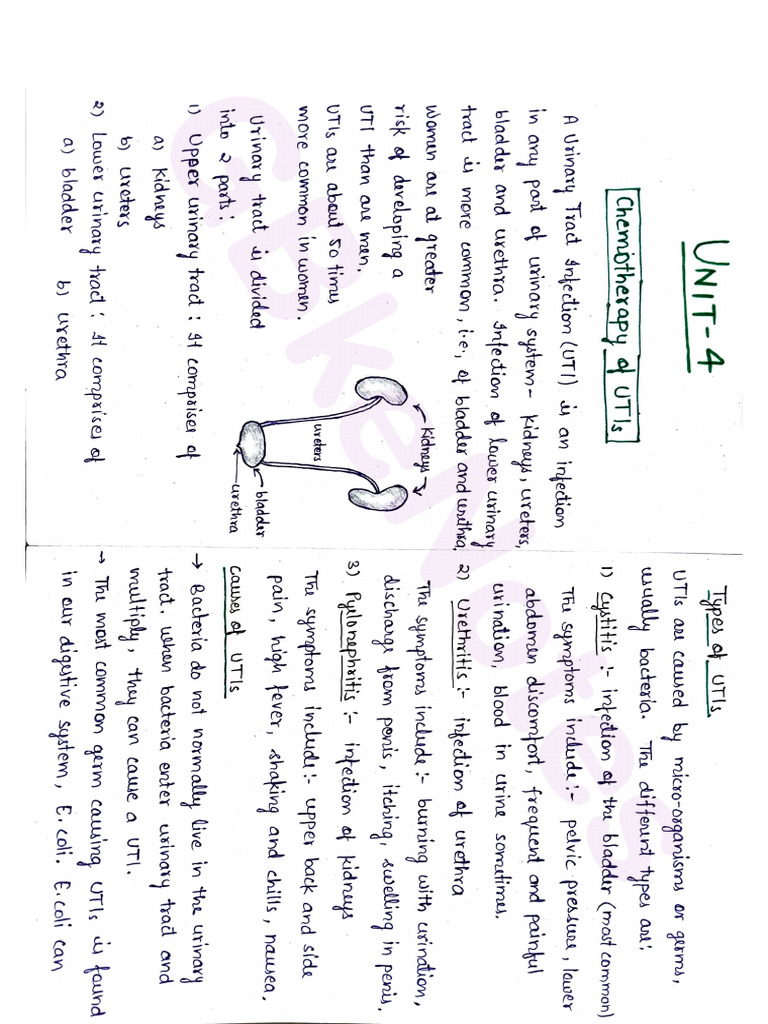 UNIT-4
Chemotherapy of UTIs
A Urinary Tract Infection (UTI) is an infection
in any part of urinary system- kidneys, ureters,
bladder and urethra. Infection of lower urinary
tract is more common, i.e., of bladder and urethra.
Women are at greater
risk of developing a
UTI than are men.
UTIs are about 50 times
more common in women.
Urinary tract is divided
into 2 parts:
kidneys
ureters
bladder
urethra
1) Upper urinary tract : It comprises of
a) kidneys
b) ureters
2) Lower urinary tract : It comprises of
a) bladder b) urethra
Types of UTIs
UTIs are caused by micro-organisms or germs,
usually bacteria. The different types are:
1) Cystitis :- infection of the bladder (most common)
The symptoms include :- pelvic pressure, lower
abdomen discomfort, frequent and painful
urination, blood in urine sometimes.
2) Urethritis :- infection of urethra
The symptoms include :- burning with urination,
discharge from penis, itching, swelling in penis.
3) Pyelonephritis :- infection of kidneys
The symptoms include:- upper back and side
pain, high fever, shaking and chills, nausea.
Causes of UTIs
→ Bacteria do not normally live in the urinary
tract. When bacteria enter urinary tract and
multiply, they can cause a UTI.
→ The most common germ causing UTIs is found
in our digestive system, E.coli. E.coli can
GBkeNotes